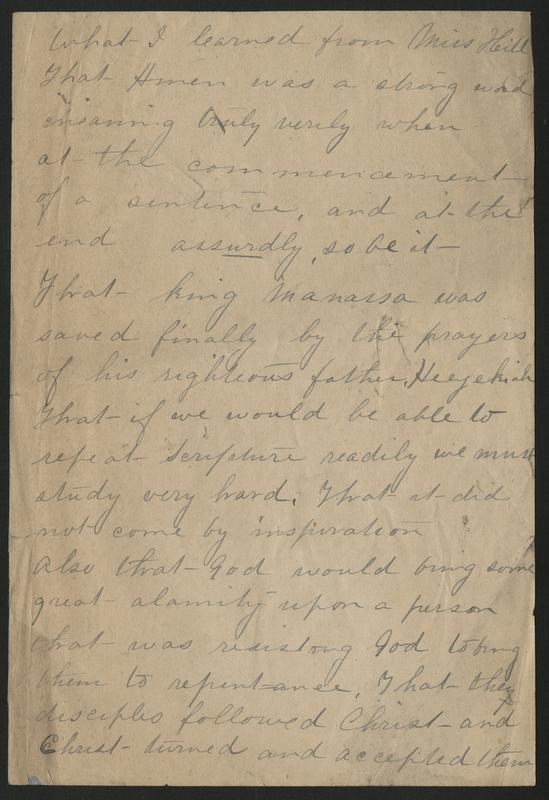 What I learned from Miss Hill
That Amen was a strong word
meaning truly verily when
at the commencement
of a sentence, and at the
end assurdly, so be it
That king Manassa was
saved finally by the prayers
of his righteous father, Hezekiah
That if we would be able to
repeat scripture readily we must
study very hard. That it did
not come by inspiration
Also that God would bring some
great alamity upon a person
that was resisting God to bring
them to repentance. That they
disciples followed Christ and
Christ turned and accepted them